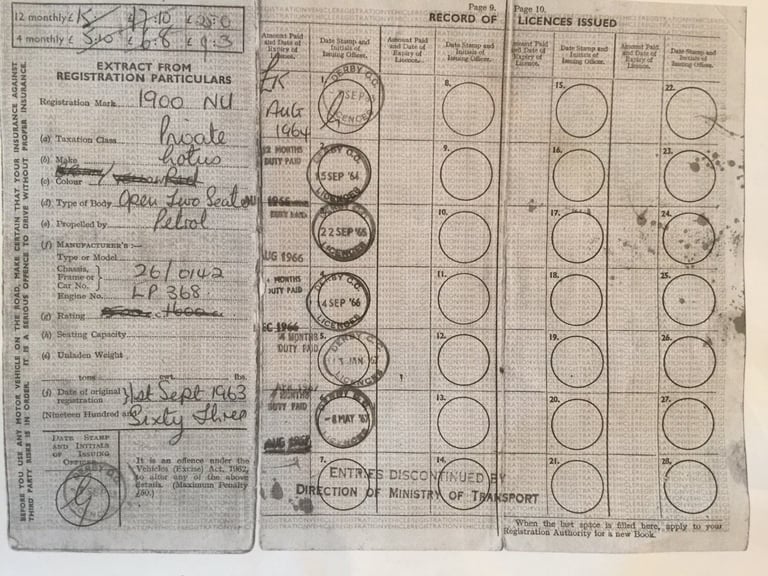 12 monthly £ 15 £17:10 £
4 monthly £ 5:10 £6:8 £
EXTRACT FROM
REGISTRATION PARTICULARS
Registration Mark 1900 NU
(a) Taxation Class Private
(b) Make Lotus
(c) Colour Red
(d) Type of Body Open Two Seater
(e) Propelled by Petrol
(f) MANUFACTURER'S :—
Type or Model
Chassis, Frame or Car No. 26/0142
Engine No. LP 368
(g) Rating 1600
(h) Seating Capacity
(i) Unladen Weight
tons cwt. lbs.
(j) Date of original registration 1st Sept 1963
(Nineteen Hundred and Sixty Three
DATE STAMP
AND INITIALS
OF ISSUING
OFFICER
DERBY C.C.
SEP
It is an offence under the
Vehicles (Excise) Act, 1962,
to alter any of the above
details. (Maximum Penalty
£50.)
BEFORE YOU USE ANY MOTOR VEHICLE ON THE ROAD, MAKE CERTAIN THAT YOUR INSURANCE AGAINST
THIRD PARTY RISKS IS IN ORDER. IT IS A SERIOUS OFFENCE TO DRIVE WITHOUT PROPER INSURANCE.
Page 9.
RECORD OF
Page 10.
LICENCES ISSUED
Amount Paid and Date of Expiry of Licence.
Date Stamp and Initials of Issuing Officer.
Amount Paid and Date of Expiry of Licence.
Date Stamp and Initials of Issuing Officer.
Amount Paid and Date of Expiry of Licence.
Date Stamp and Initials of Issuing Officer.
Amount Paid and Date of Expiry of Licence.
Date Stamp and Initials of Issuing Officer.
AUG
1964
1.
DERBY C.C.
SEP
LICENCES
8.
15.
22.
12 MONTHS
DUTY PAID
2.
DERBY C.C.
15 SEP '64
LICENCES
9.
16.
23.
DERBY C.C.
22 SEP '65
LICENCES
10.
17.
24.
AUG 1966
4 MONTHS
DUTY PAID
4.
DERBY C.C.
14 SEP '66
LICENCES
11.
18.
25.
DEC 1966
4 MONTHS
DUTY PAID
5.
DERBY C.C.
JAN '67
LICENCES
12.
19.
26.
APR 1967
4 MONTHS
DUTY PAID
DERBY C.C.
-8 MAY '67
LICENCES
13.
20.
27.
AUG 1967
7.
14.
21.
28.
ENTRIES DISCONTINUED BY
DIRECTION OF MINISTRY OF TRANSPORT
When the last space is filled here, apply to your
Registration Authority for a new Book.